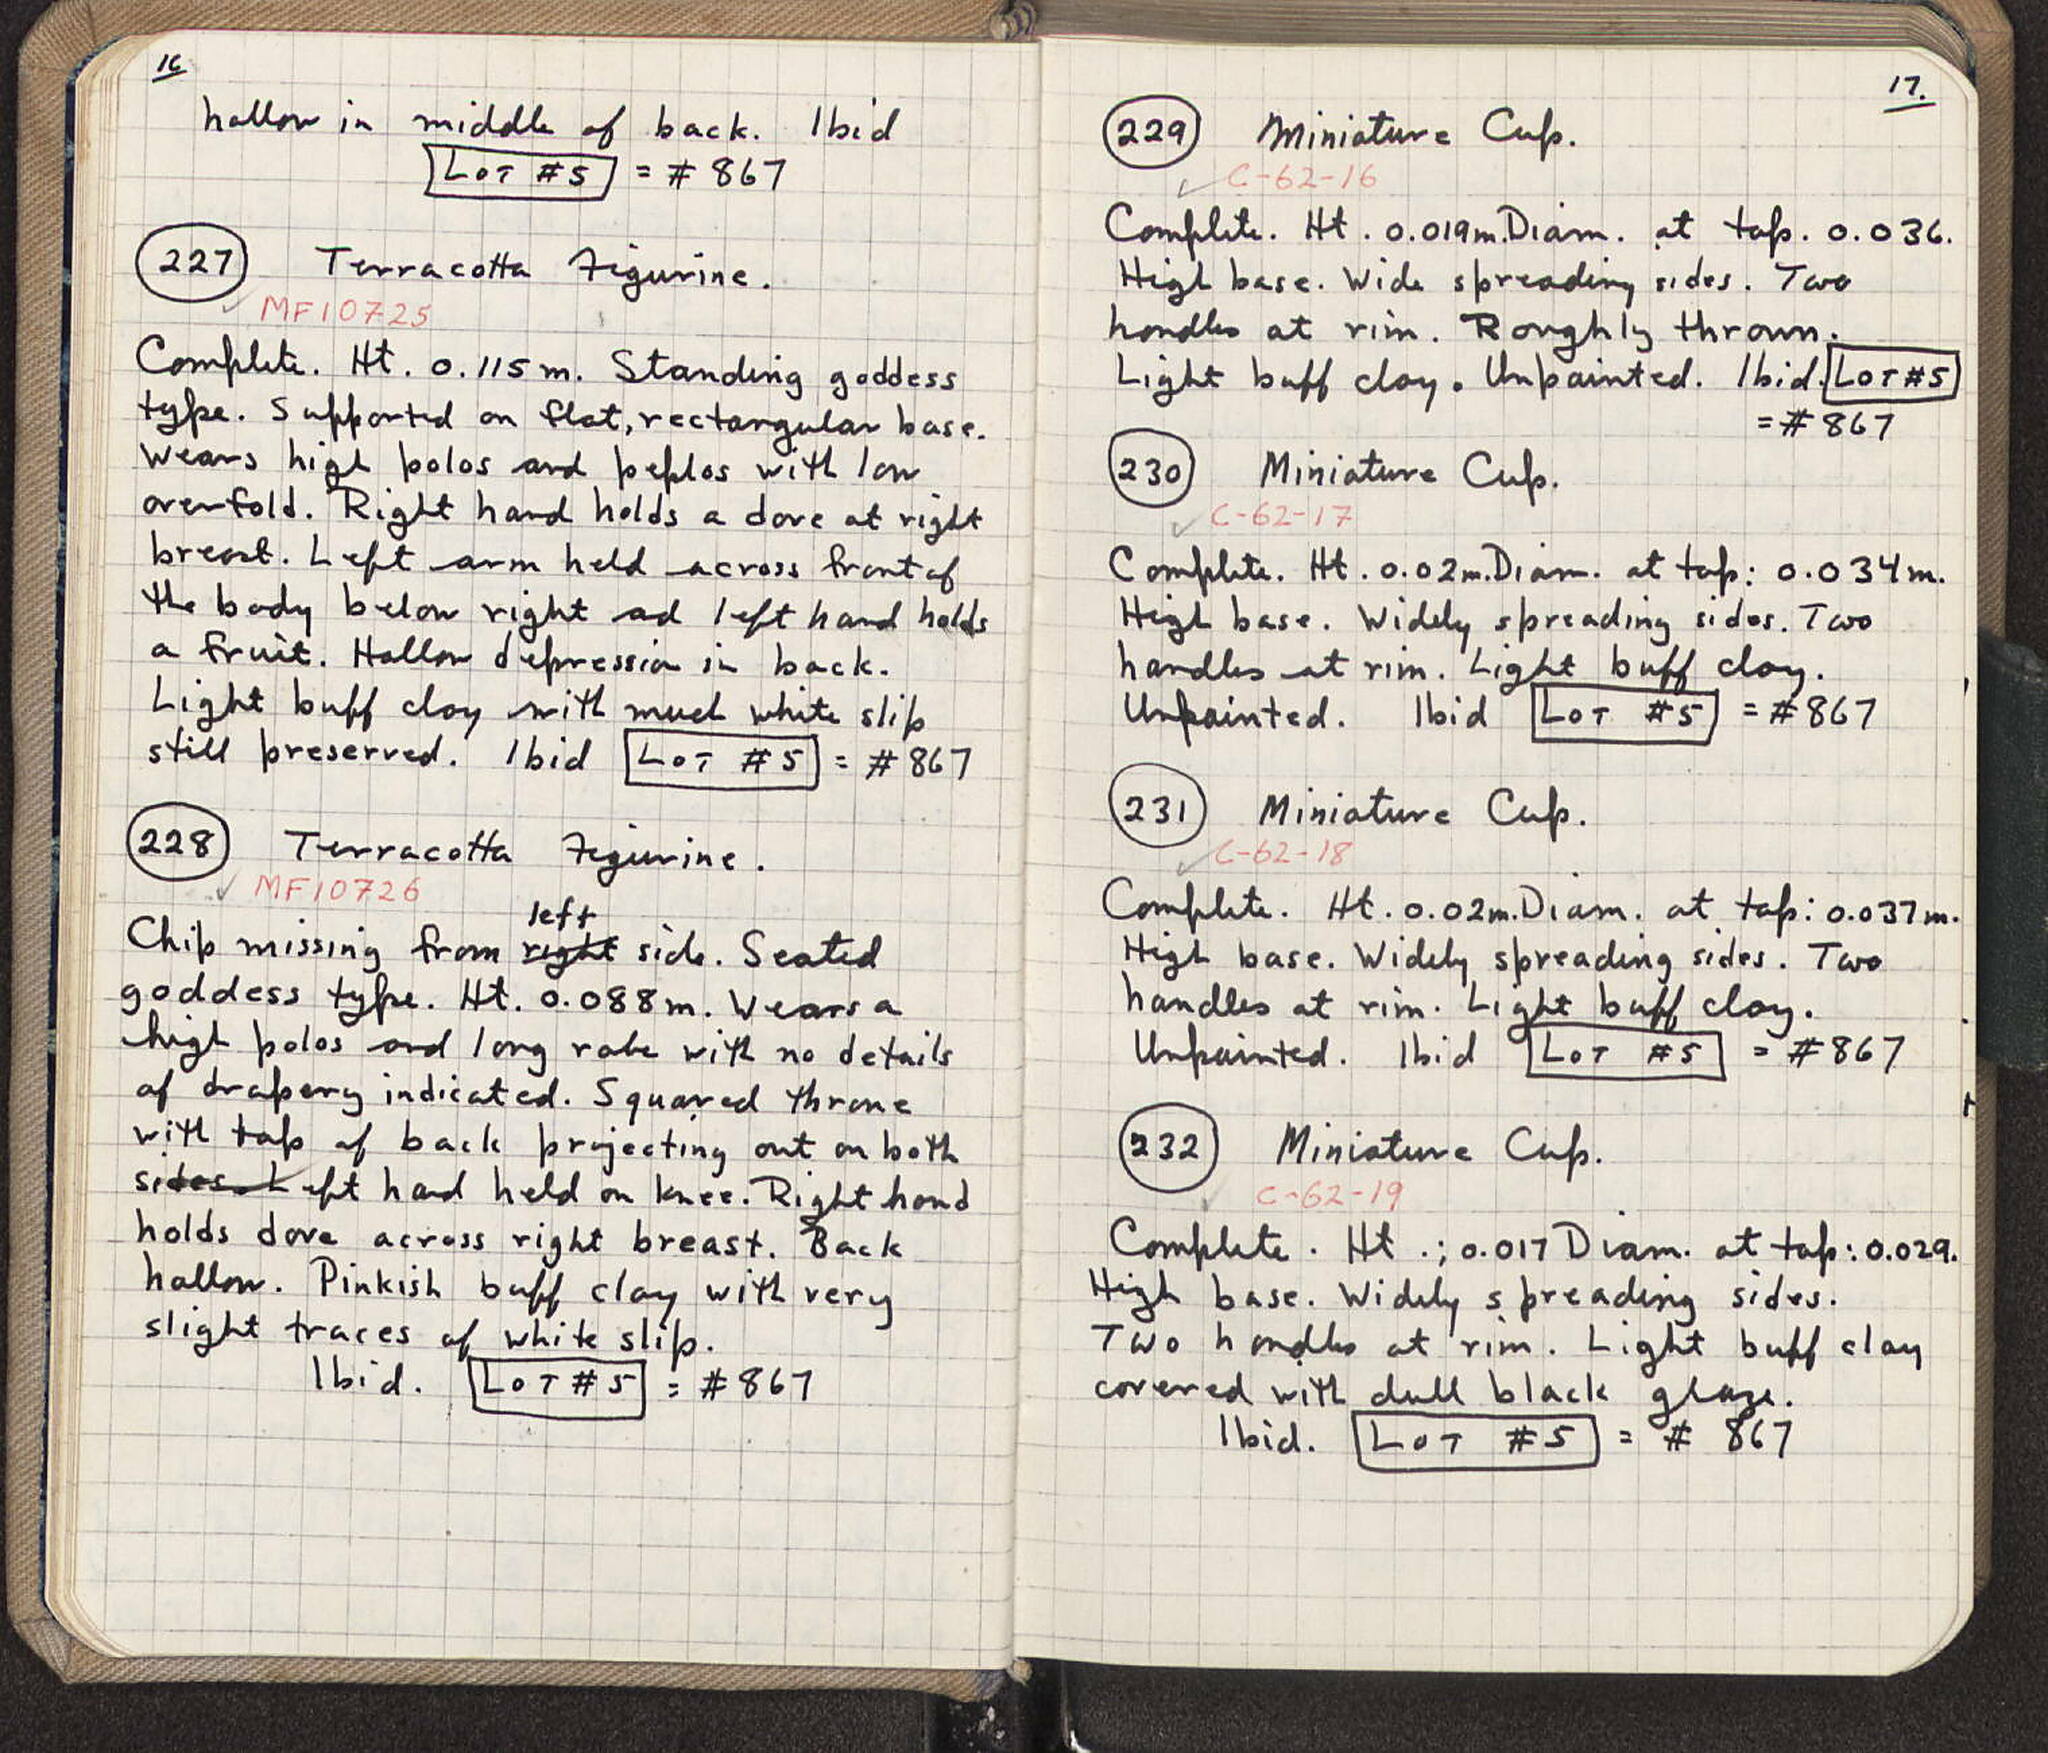 16
hollow in middle of back. Ibid
LOT #5 = # 867
227 Terracotta Figurine.
MF10725
Complete. Ht. 0.115m. Standing goddess
type. Supported on flat, rectangular base.
Wears high polos and peplos with low
overfold. Right hand holds a dove at right
breast. Left arm held across front of
the body below right ad left hand holds
a fruit. Hollow depression in back.
Light buff clay with much white slip
still preserved. Ibid LOT #5 = #867
228 Terracotta Figurine.
MF10726
left
Chip missing from right side. Seated
goddess type. Ht. 0.088m. Wears a
high polos and long robe with no details
of drapery indicated. Squared throne
with top of back projecting out on both
sides. Left hand held on knee. Right hand
holds dove across right breast. Back
hollow. Pinkish buff clay with very
slight traces of white slip.
Ibid. LOT #5 = #867
17.
229 Miniature Cup.
C-62-16
Complete. Ht. 0.019m. Diam. at top. 0.036.
High base. Wide spreading sides. Two
handles at rim. Roughly thrown.
Light buff clay. Unpainted. Ibid. LOT #5
= #867
230 Miniature Cup.
C-62-17
Complete. Ht. 0.02m. Diam. at top: 0.034m.
High base. Widely spreading sides. Two
handles at rim. Light buff clay.
Unpainted. Ibid LOT #5 = #867
231 Miniature Cup.
C-62-18
Complete. Ht. 0.02m. Diam. at top: 0.037m.
High base. Widely spreading sides. Two
handles at rim. Light buff clay.
Unpainted. Ibid LOT #5 = #867
232 Miniature Cup.
C-62-19
Complete. Ht.; 0.017 Diam. at top: 0.029.
High base. Widely spreading sides.
Two handles at rim. Light buff clay
covered with dull black glaze.
Ibid. LOT #5 = # 867